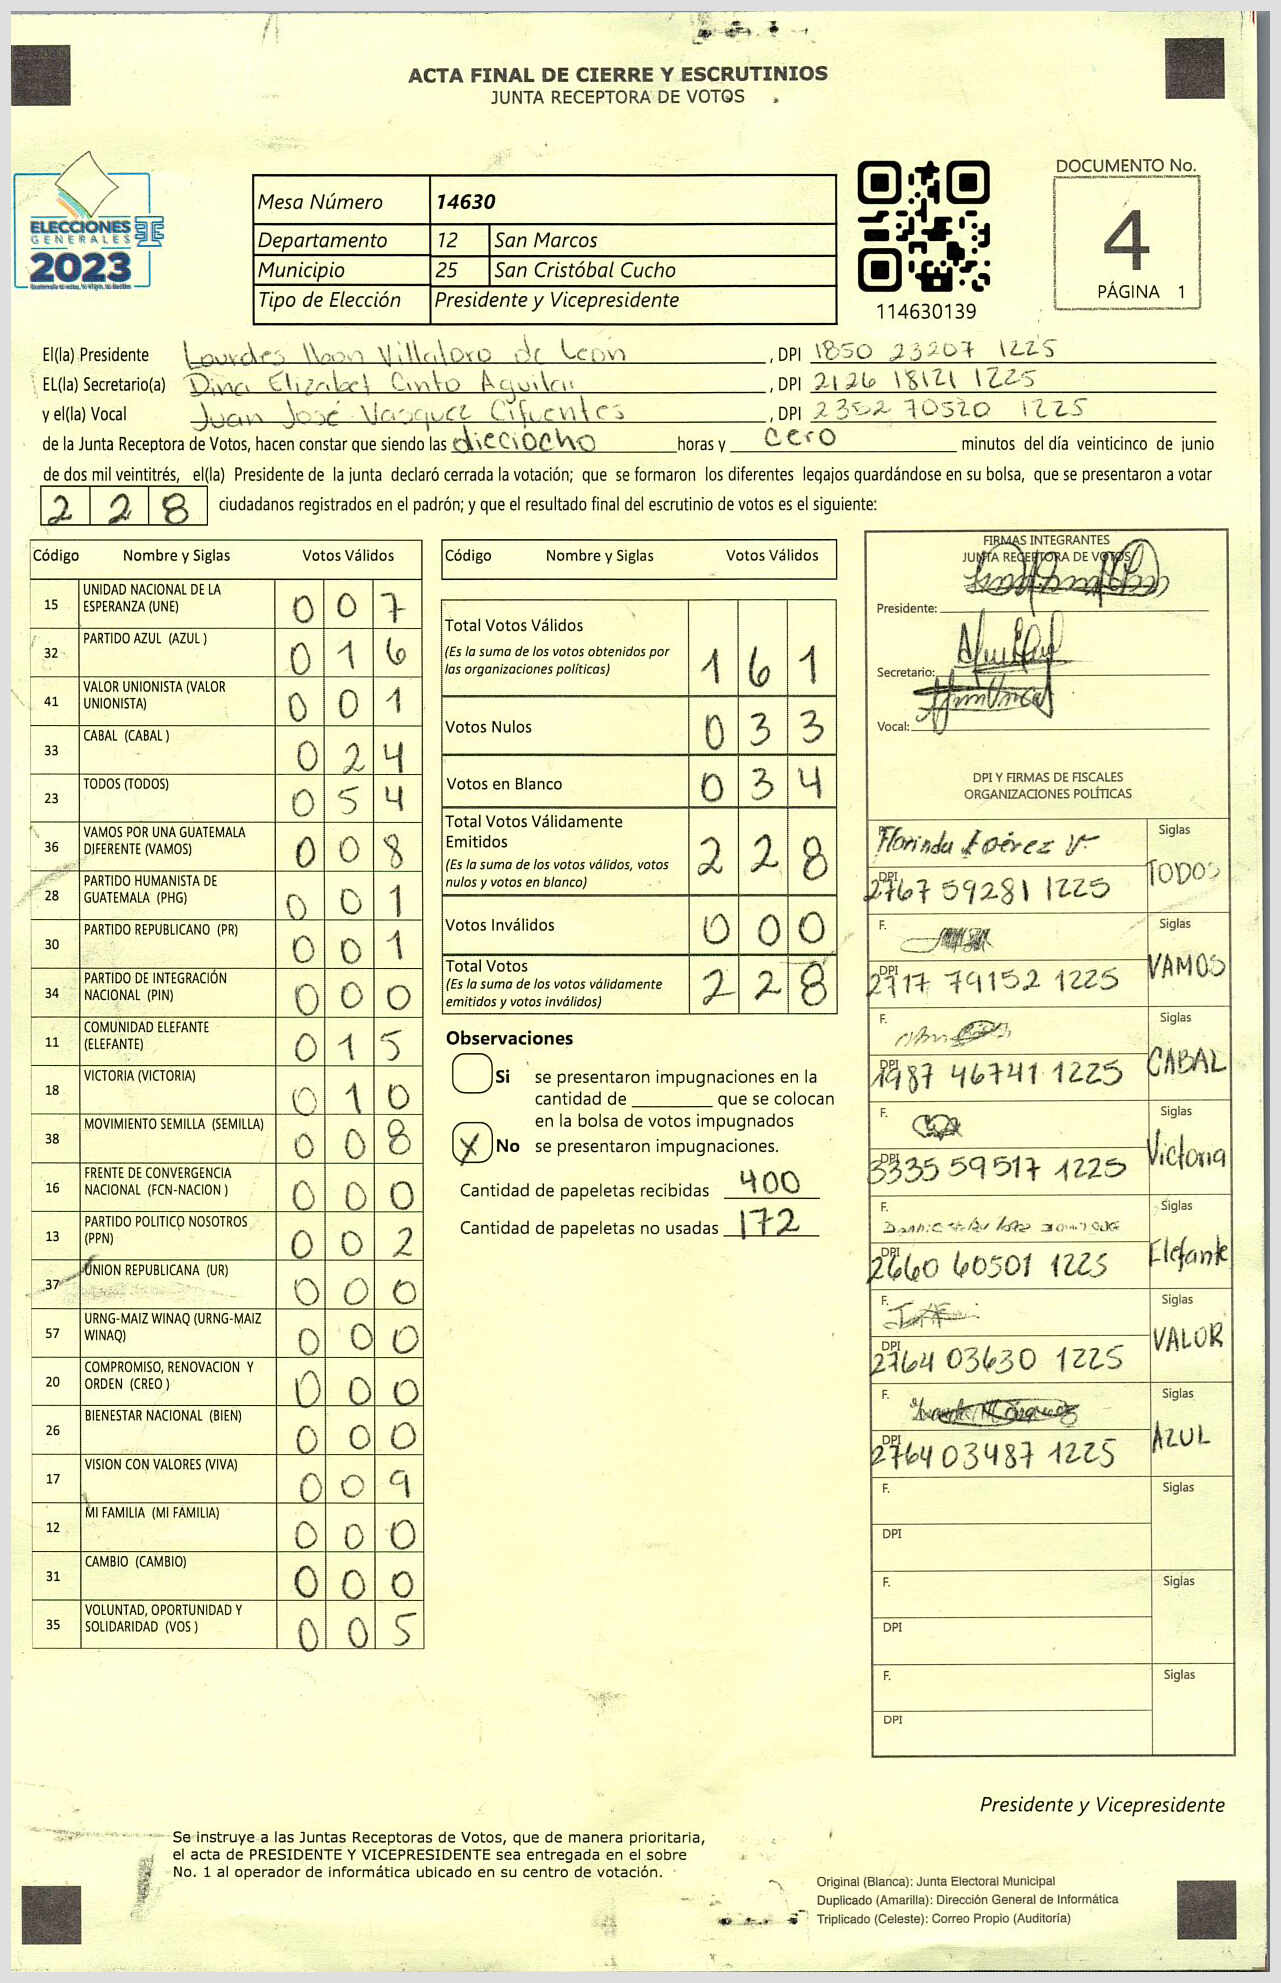 ACTA FINAL DE CIERRE Y ESCRUTINIOS
JUNTA RECEPTORA DE VOTOS
ELECCIONES
GENERALES
2023
Mesa Número 14630
Departamento 12 San Marcos
Municipio 25 San Cristóbal Cucho
Tipo de Elección Presidente y Vicepresidente
114630139
DOCUMENTO No.
4
PÁGINA 1
El(la) Presidente Lourdes Villatoro de León, DPI 1850 23207 1225
EL(la) Secretario(a) Dina Elizabet Cinto Aguilar, DPI 2126 18121 1225
y el(la) Vocal Juan José Vasquez Cifuentes, DPI 2352 70520 1225
de la Junta Receptora de Votos, hacen constar que siendo las dieciocho horas y cero minutos del día veinticinco de junio
de dos mil veintitrés, el(la) Presidente de la junta declaró cerrada la votación; que se formaron los diferentes legajos guardándose en su bolsa, que se presentaron a votar
228 ciudadanos registrados en el padrón; y que el resultado final del escrutinio de votos es el siguiente:
Código Nombre y Siglas Votos Válidos
15 UNIDAD NACIONAL DE LA
ESPERANZA (UNE) 007
32 PARTIDO AZUL (AZUL ) 016
41 VALOR UNIONISTA (VALOR
UNIONISTA) 001
33 CABAL (CABAL ) 024
23 TODOS (TODOS) 054
36 VAMOS POR UNA GUATEMALA
DIFERENTE (VAMOS) 008
28 PARTIDO HUMANISTA DE
GUATEMALA (PHG) 001
30 PARTIDO REPUBLICANO (PR) 001
34 PARTIDO DE INTEGRACIÓN
NACIONAL (PIN) 000
11 COMUNIDAD ELEFANTE
(ELEFANTE) 015
18 VICTORIA (VICTORIA) 010
38 MOVIMIENTO SEMILLA (SEMILLA) 008
16 FRENTE DE CONVERGENCIA
NACIONAL (FCN-NACION ) 000
13 PARTIDO POLITICO NOSOTROS
(PPN) 002
37 UNION REPUBLICANA (UR) 000
57 URNG-MAIZ WINAQ (URNG-MAIZ
WINAQ) 000
20 COMPROMISO, RENOVACION Y
ORDEN (CREO ) 000
26 BIENESTAR NACIONAL (BIEN) 000
17 VISION CON VALORES (VIVA) 009
12 MI FAMILIA (MI FAMILIA) 000
31 CAMBIO (CAMBIO) 000
35 VOLUNTAD, OPORTUNIDAD Y
SOLIDARIDAD (VOS ) 005
Código Nombre y Siglas Votos Válidos
Total Votos Válidos
(Es la suma de los votos obtenidos por
las organizaciones políticas) 161
Votos Nulos 033
Votos en Blanco 034
Total Votos Válidamente
Emitidos
(Es la suma de los votos válidos, votos
nulos y votos en blanco) 228
Votos Inválidos 000
Total Votos
(Es la suma de los votos válidamente
emitidos y votos inválidos) 228
Observaciones
Si se presentaron impugnaciones en la
cantidad de ________ que se colocan
en la bolsa de votos impugnados
X No se presentaron impugnaciones.
Cantidad de papeletas recibidas 400
Cantidad de papeletas no usadas 172
FIRMAS INTEGRANTES
JUNTA RECEPTORA DE VOTOS
Presidente:
Secretario:
Vocal:
DPI Y FIRMAS DE FISCALES
ORGANIZACIONES POLÍTICAS
Florinda Siglas
DPI 2767 59281 1225 TODOS
F. Siglas
DPI 2717 79152 1225 VAMOS
F. Siglas
DPI 1987 46741 1225 CABAL
F. Siglas
DPI 3335 59517 1225 Victoria
F. Siglas
DPI 2660 60501 1225 Elefante
F. Siglas
DPI 2764 03630 1225 VALOR
F. Siglas
DPI 2764 03487 1225 AZUL
F. Siglas
DPI
F. Siglas
DPI
F. Siglas
DPI
Presidente y Vicepresidente
Se instruye a las Juntas Receptoras de Votos, que de manera prioritaria,
el acta de PRESIDENTE Y VICEPRESIDENTE sea entregada en el sobre
No. 1 al operador de informática ubicado en su centro de votación.
Original (Blanca): Junta Electoral Municipal
Duplicado (Amarilla): Dirección General de Informática
Triplicado (Celeste): Correo Propio (Auditoría)